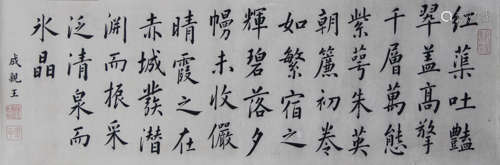 红蕖吐豔
翠盖高擎
千層萬態
紫萼朱英
朝簾初卷
如繁宿之
輝碧落夕
幔未收儼
晴霞之在
赤城發潜
渊而振采
泛清泉而
氷晶
成親王